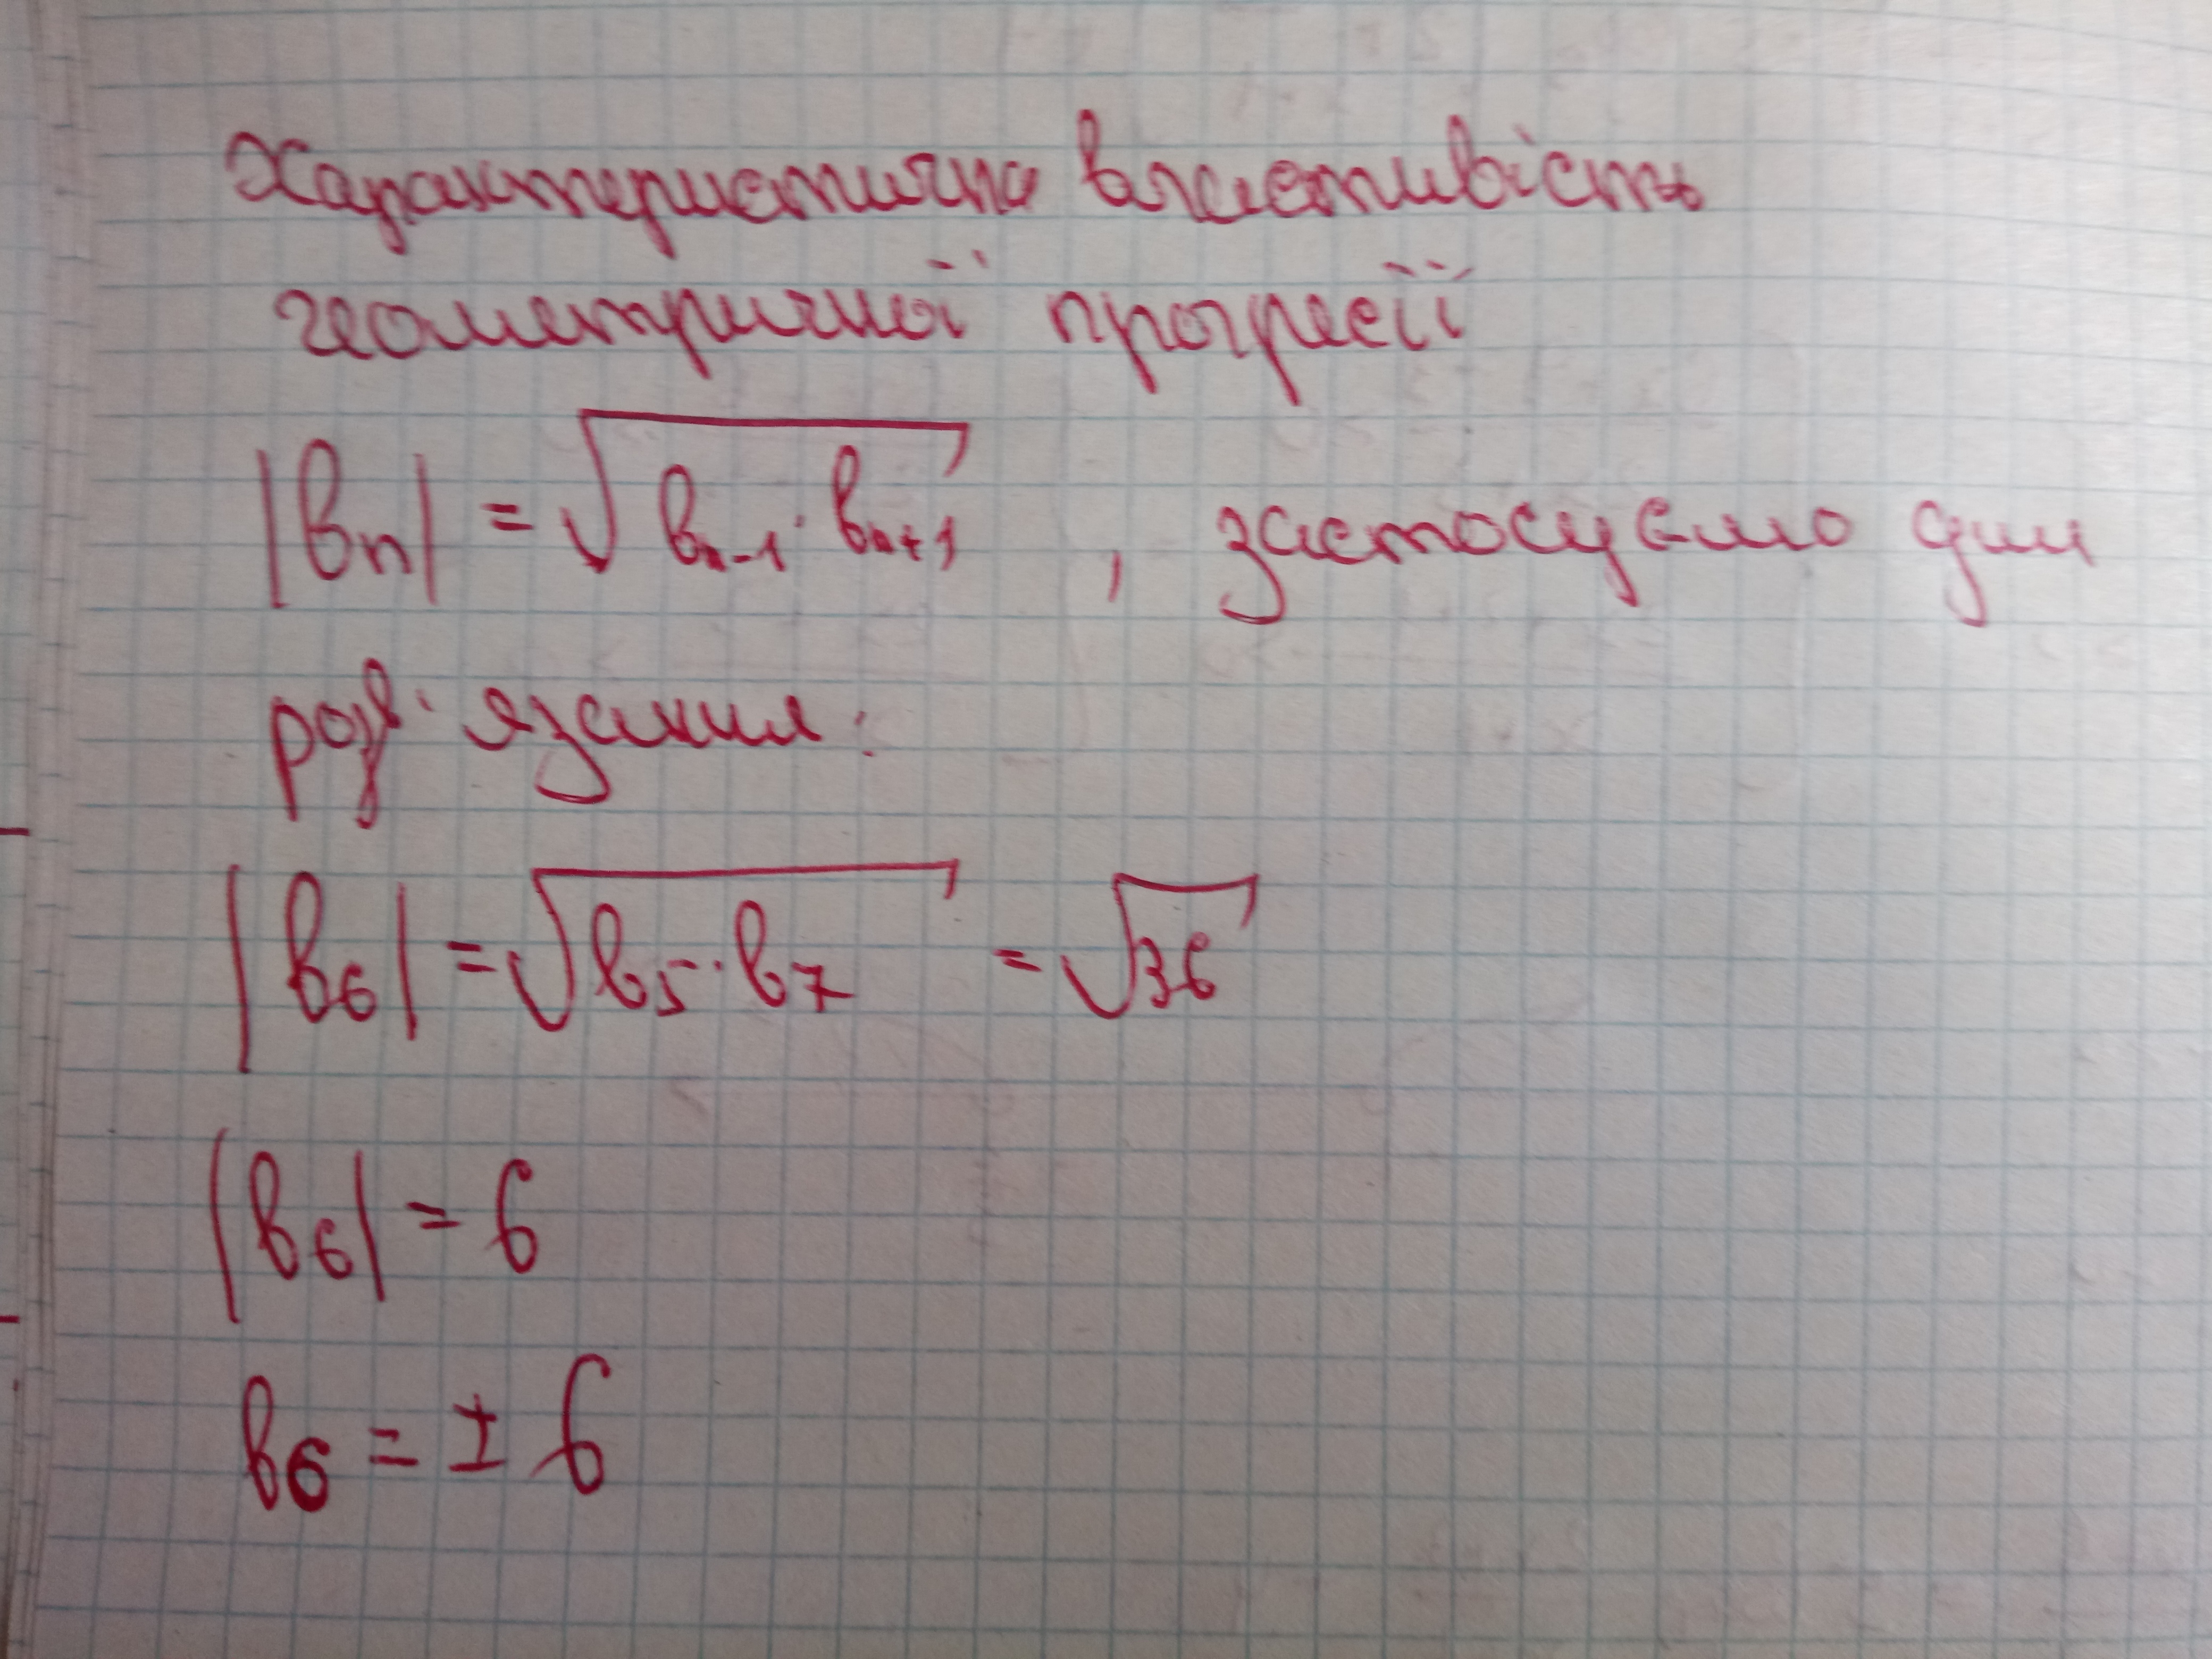 Характеристична властивість
геометричної прогресії
|bₙ| = √(bₙ₋₁ · bₙ₊₁) , застосуємо для
розв'язання:
|b₆| = √(b₅ · b₇) = √36
|b₆| = 6
b₆ = ± 6